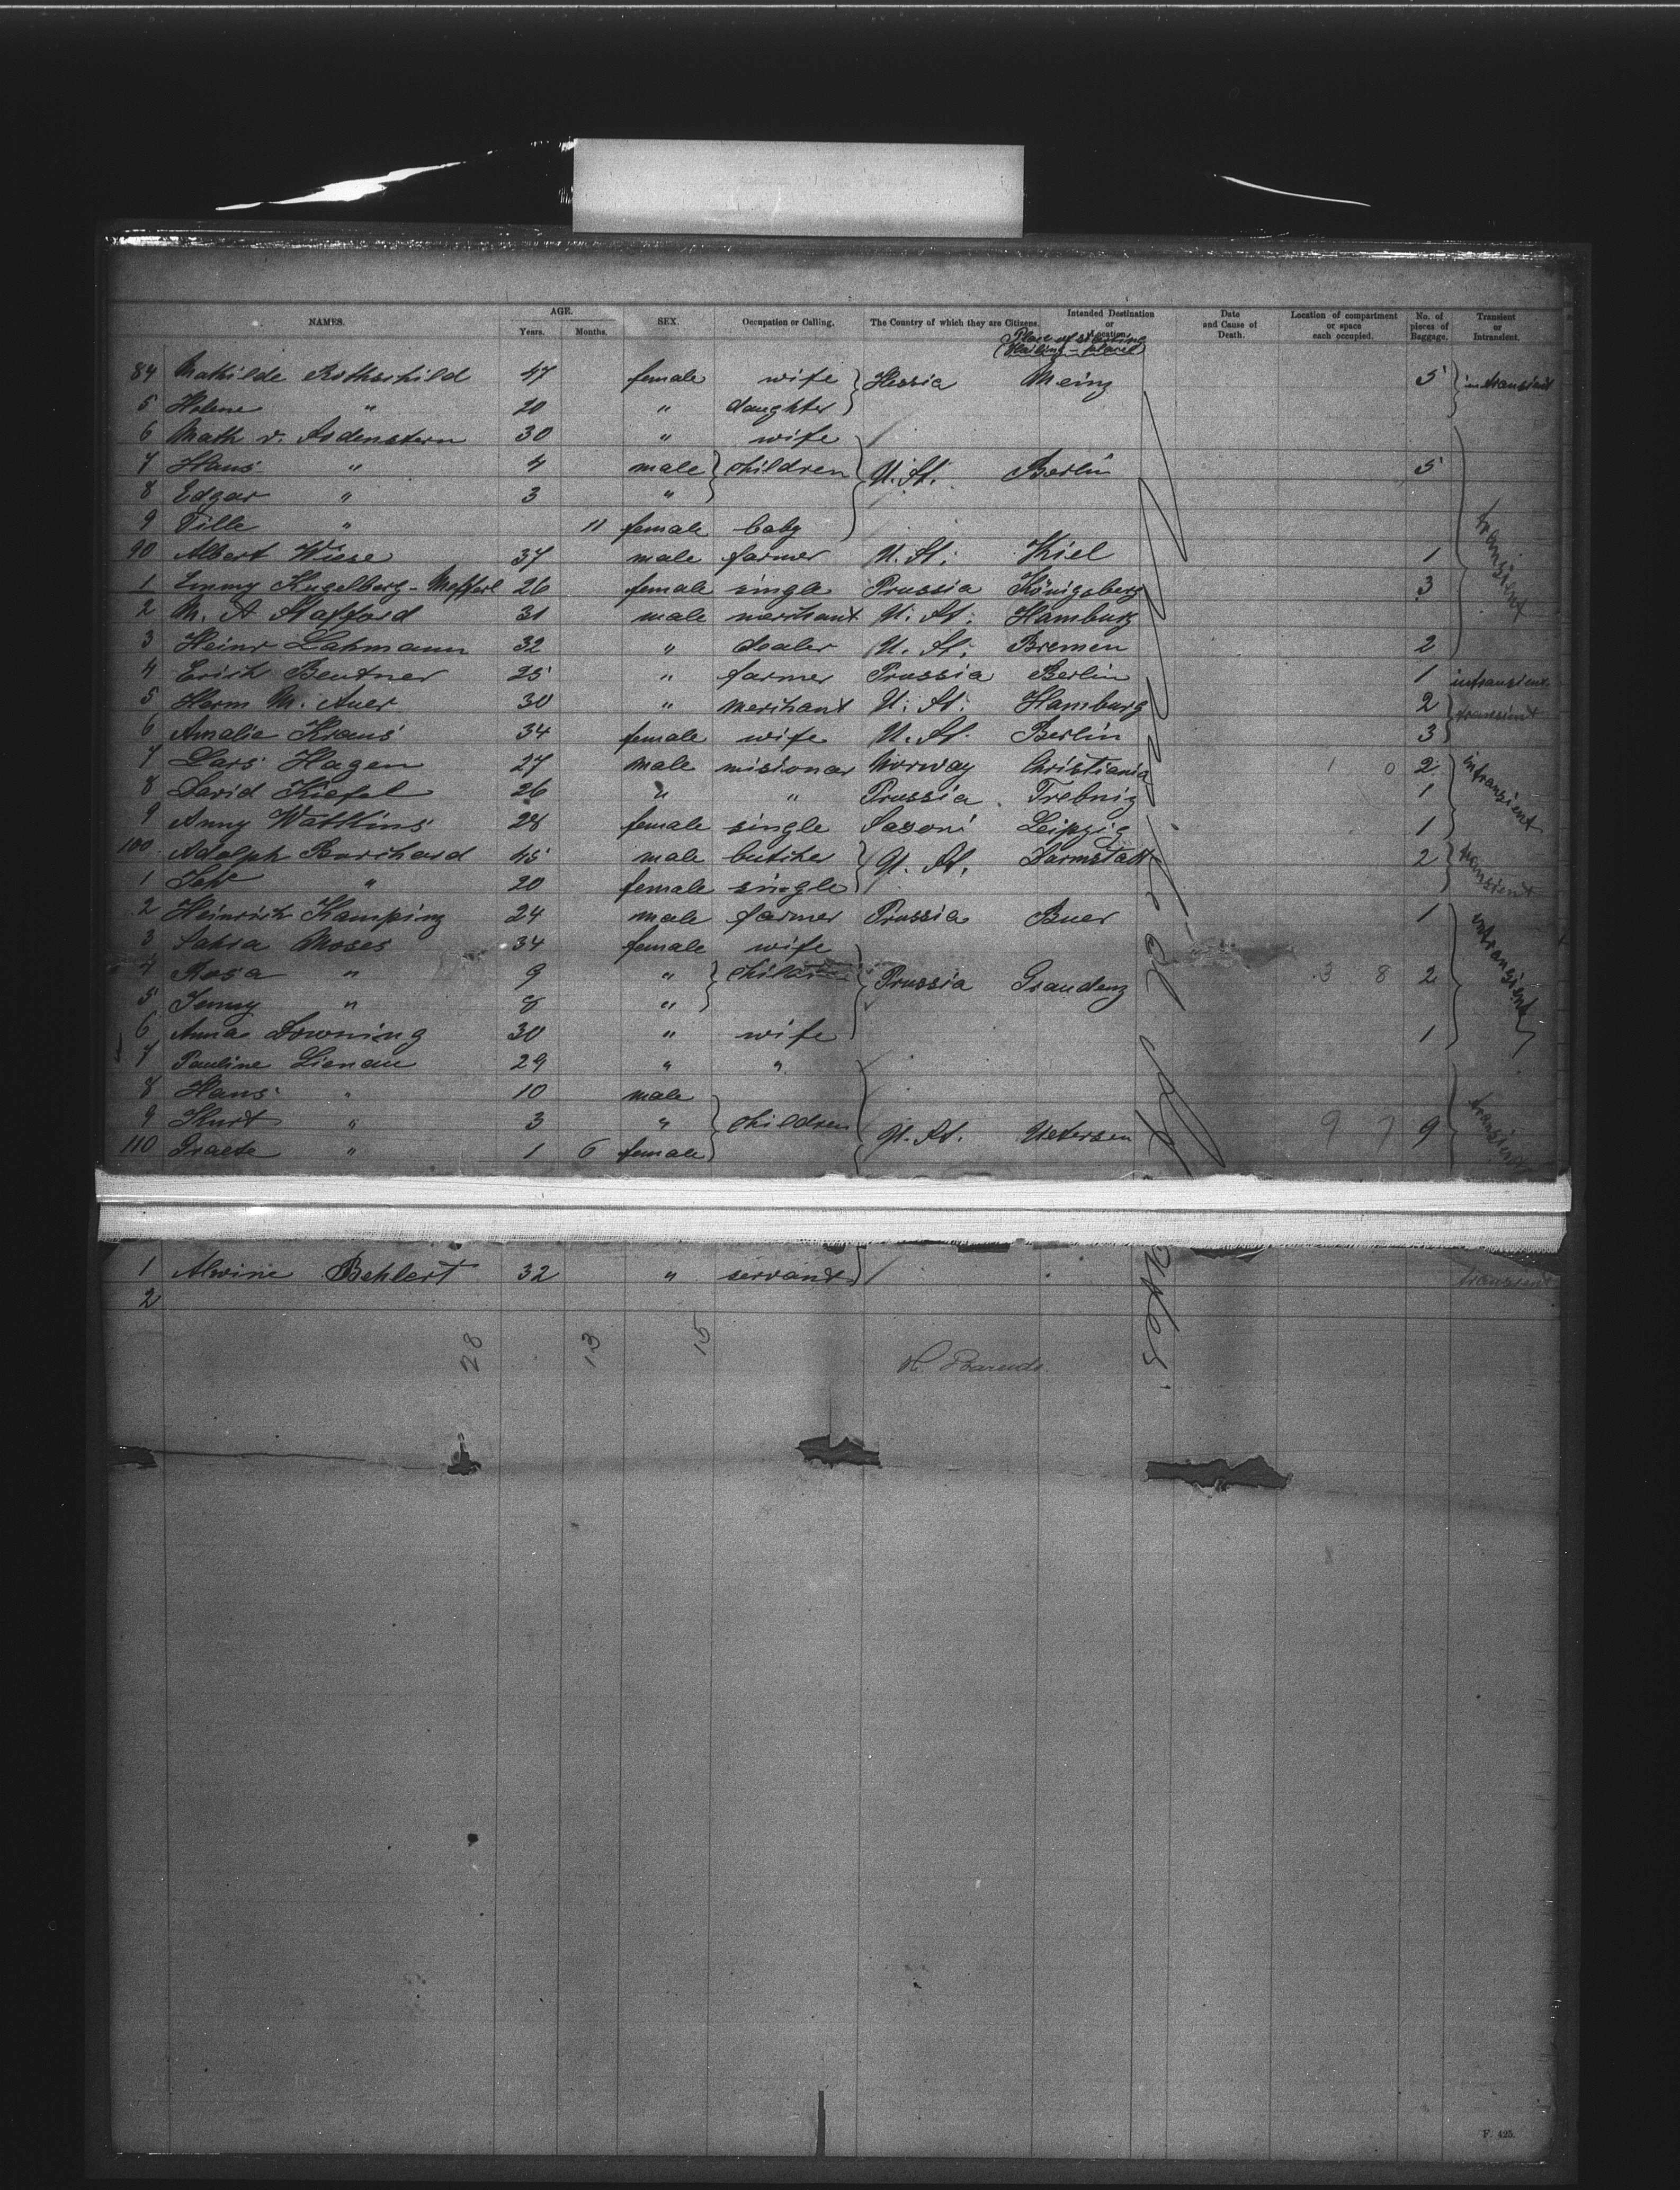 NAMES. AGE. Years. Months. SEX. Occupation or Calling. The Country of which they are Citizens. Intended Destination or Location. Date and Cause of Death. Location of compartment or space each occupied. No. of pieces of Baggage. Transient or Intransient.
Place of starting
84 Mathilde Rothschild 47 female wife Hessia Meinz 5 intransient
5 Helene " 20 " daughter
6 Math v. Ardenstern 30 " wife
7 Hans " 4 male children U. St. Berlin 5
8 Edgar " 3 "
9 Tille " 11 female baby transient
90 Albert Wiese 37 male farmer U. St. Kiel 1
1 Emmy Kugelberg- 26 female single Prussia Königsberg 3
2 M. A Stafford 31 male merchant U. St. Hamburg
3 Heinr Lahmann 32 " dealer U. St. Bremen 2
4 Erich Beutner 25 " farmer Prussia Berlin 1 intransient
5 Herm M. Auer 30 " merchant U. St. Hamburg 2 transient
6 Amalie Kraus 34 female wife U. St. Berlin 3
7 Lars Hagen 27 male misionar Norway Christiania 1 0 2 intransient
8 David Kiefel 26 " " Prussia Trebnig 1
9 Anny Watkins 28 female single Saxoni Leipzig 1
100 Adolph Burchard 45 male butcher U. St. Darmstadt 2 transient
1 " 20 female single
2 Heinrich Kamping 24 male farmer Prussia Buer 1 intransient
3 Sahra Moses 34 female wife
4 Rosa " 9 " children Prussia Graudenz 3 8 2
5 Jenny " 8 "
6 Anna Downing 30 " wife 1
7 Pauline Lienau 29 " "
8 Hans " 10 male
9 Kurt " 3 " children U. St. Uetersen 9 7 9 transient
110 Graete " 1 6 female
1 Alwine Behlert 32 " servant transient
2
28 13 15
F. 425.